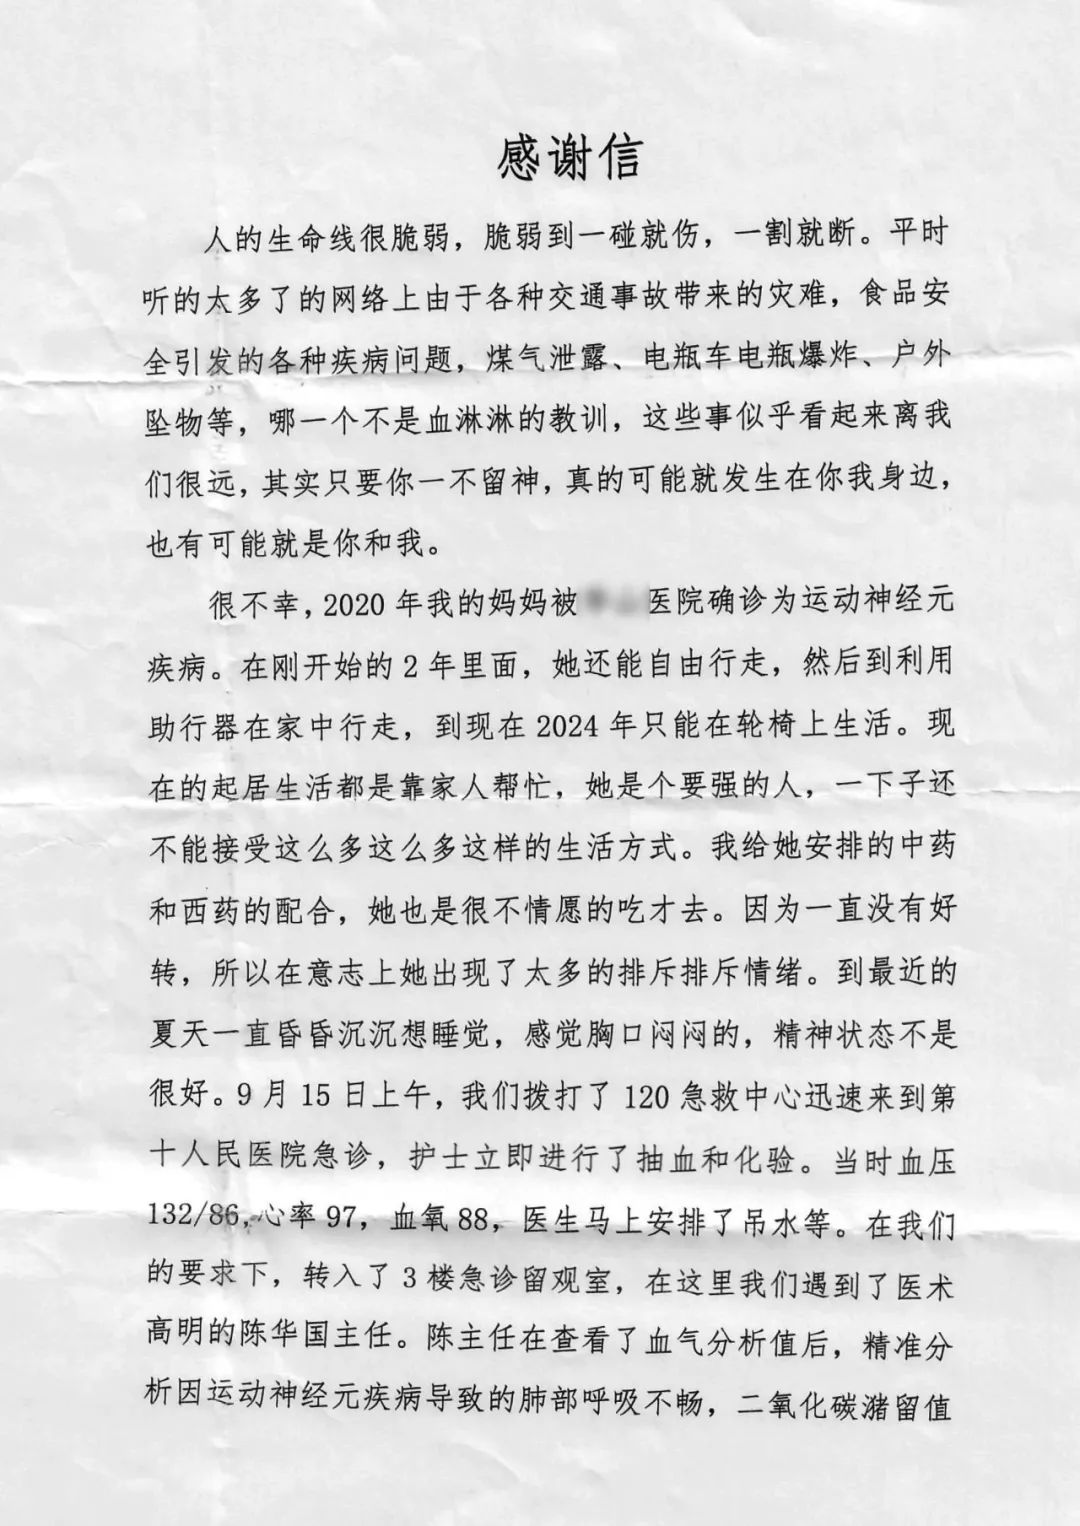 感谢信
人的生命线很脆弱，脆弱到一碰就伤，一割就断。平时
听的太多了的网络上由于各种交通事故带来的灾难，食品安
全引发的各种疾病问题，煤气泄露、电瓶车电瓶爆炸、户外
坠物等，哪一个不是血淋淋的教训，这些事似乎看起来离我
们很远，其实只要你一不留神，真的可能就发生在你我身边，
也有可能就是你和我。
很不幸，2020年我的妈妈被医院确诊为运动神经元
疾病。在刚开始的2年里面，她还能自由行走，然后到利用
助行器在家中行走，到现在2024年只能在轮椅上生活。现
在的起居生活都是靠家人帮忙，她是个要强的人，一下子还
不能接受这么多这么多这样的生活方式。我给她安排的中药
和西药的配合，她也是很不情愿的吃才去。因为一直没有好
转，所以在意志上她出现了太多的排斥排斥情绪。到最近的
夏天一直昏昏沉沉想睡觉，感觉胸口闷闷的，精神状态不是
很好。9月15日上午，我们拨打了120急救中心迅速来到第
十人民医院急诊，护士立即进行了抽血和化验。当时血压
132/86，心率97，血氧88，医生马上安排了吊水等。在我们
的要求下，转入了3楼急诊留观室，在这里我们遇到了医术
高明的陈华国主任。陈主任在查看了血气分析值后，精准分
析因运动神经元疾病导致的肺部呼吸不畅，二氧化碳潴留值